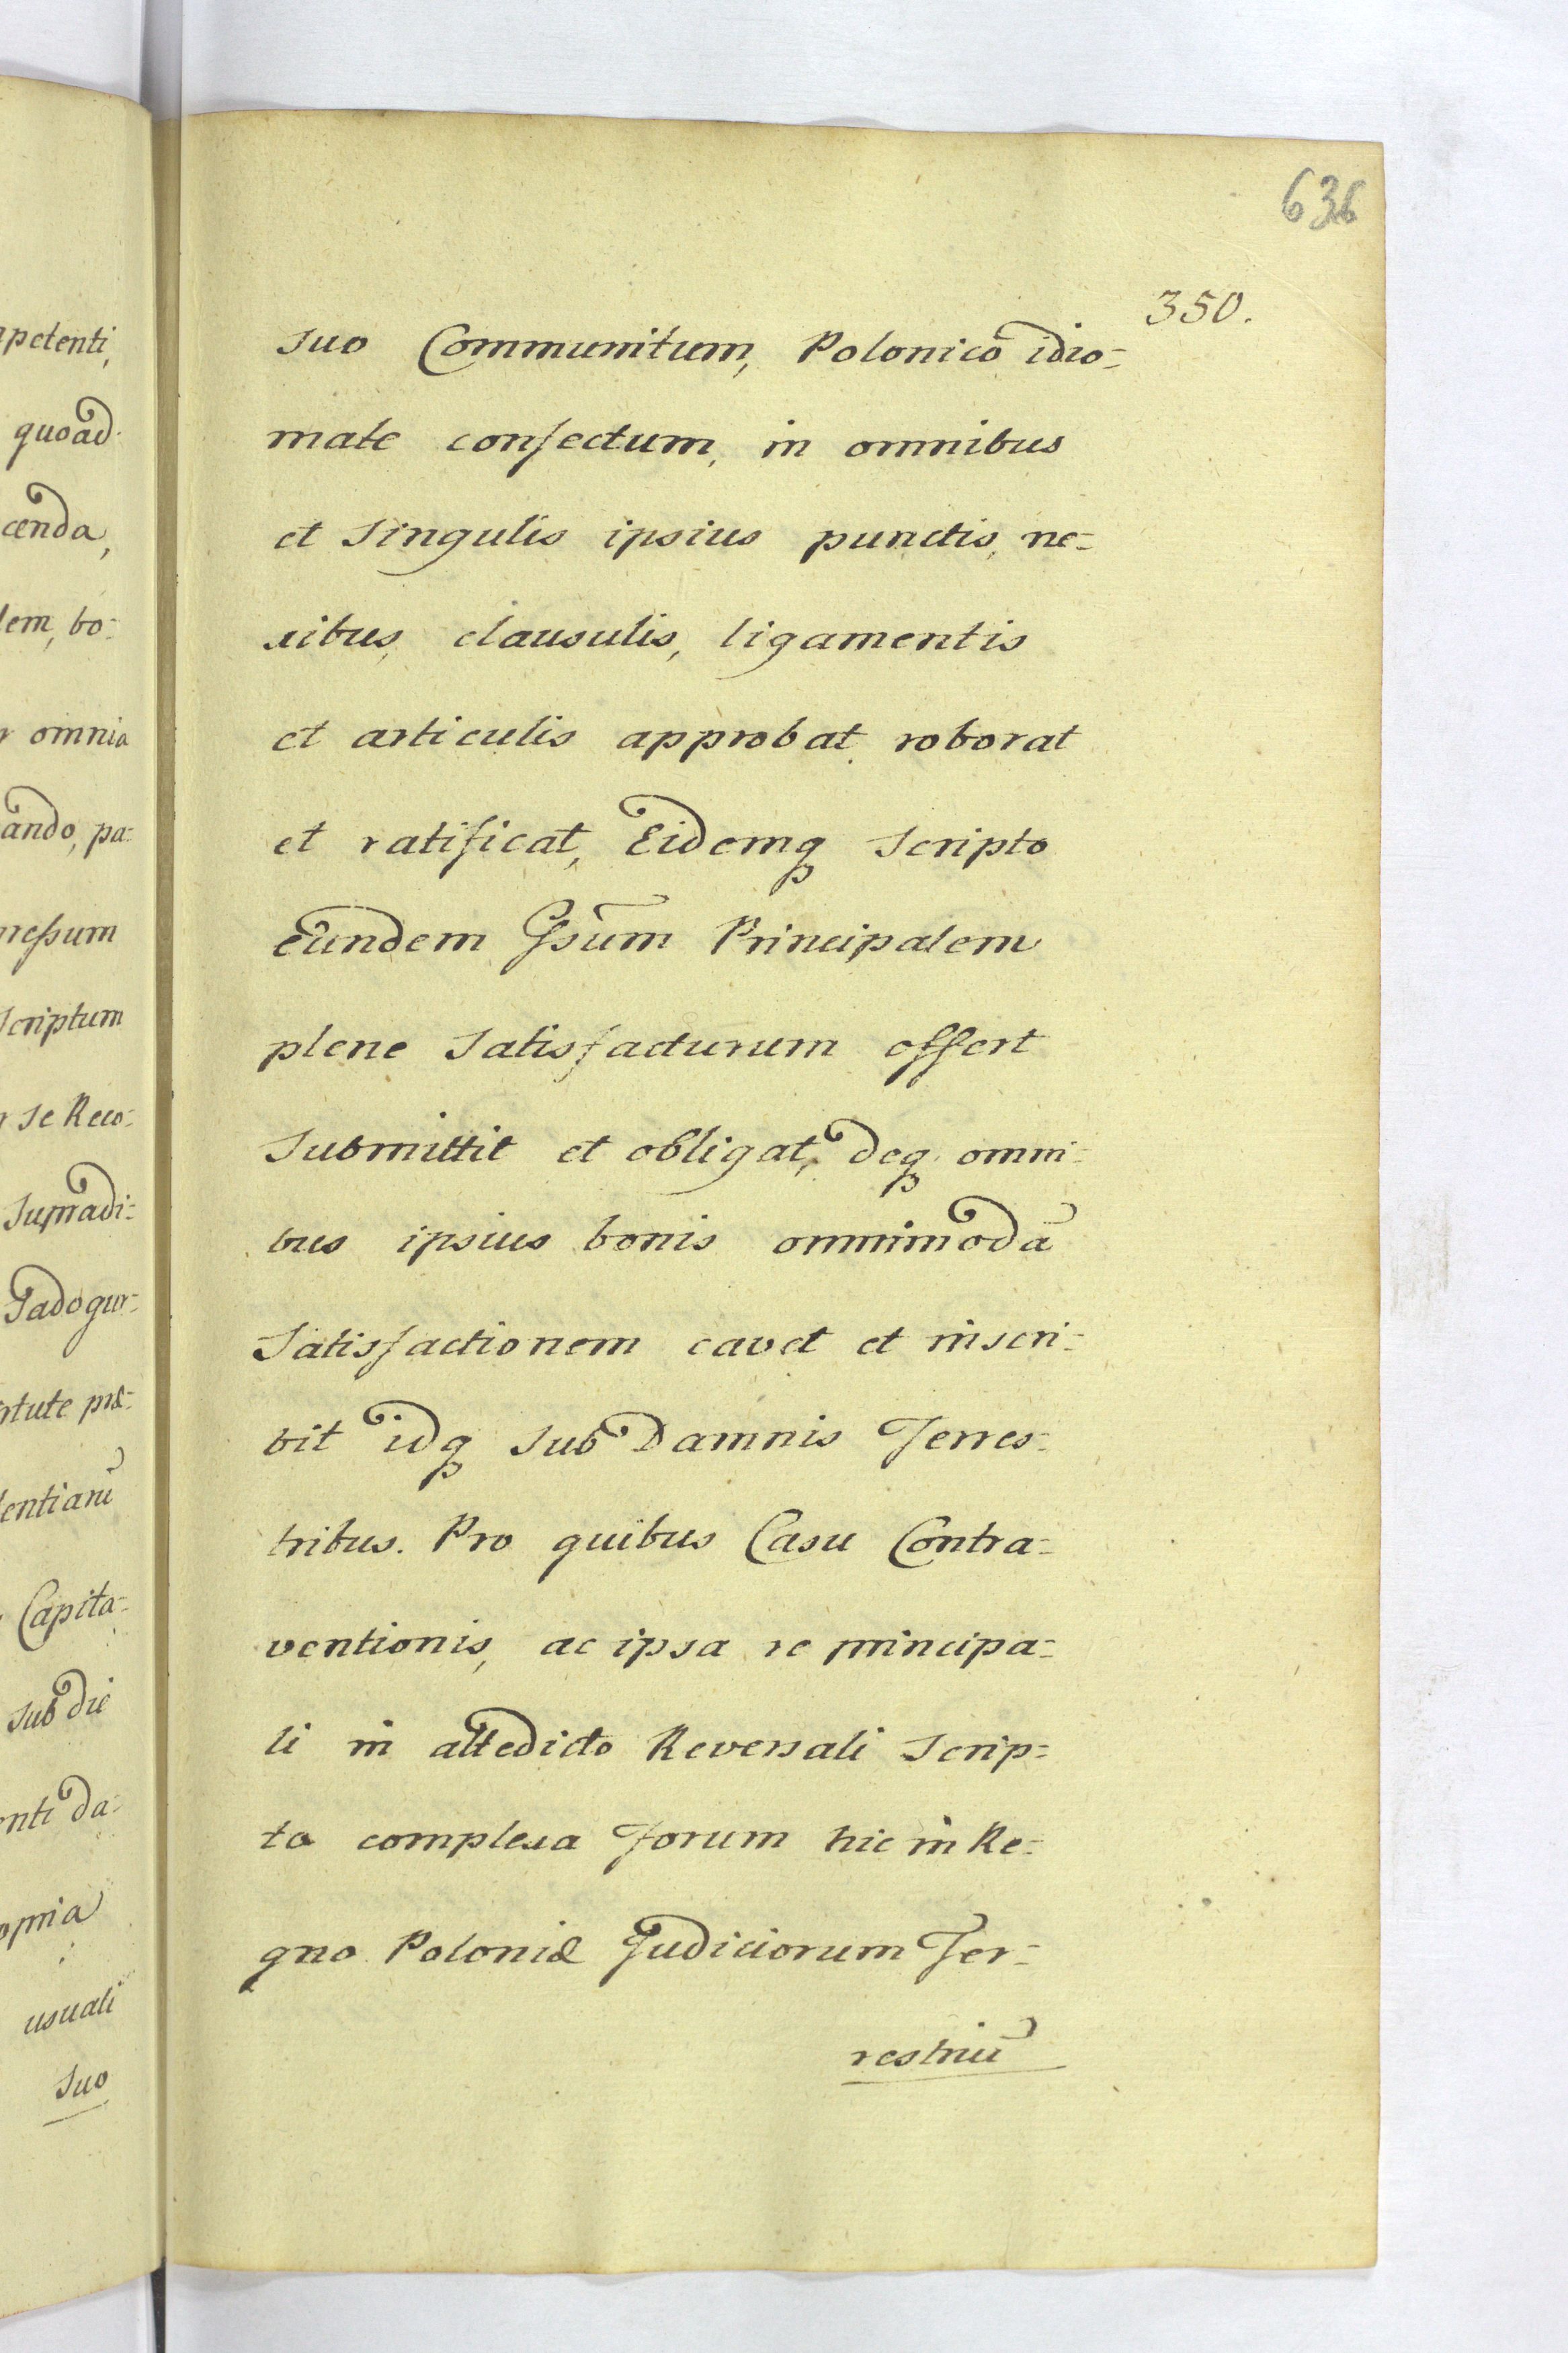 636
350.
suo Communitum, Polonicô idio-
mate confectum, in omnibus
et Singulis ipsius punctis, ne-
xibus, clausulis, ligamentis
et articulis approbat, roborat
et ratificat, Eidemq Scripto
Eundem Gsum Principalem
plene Satisfacturum offert
Submittit et obligat, deq omni-
bus ipsius bonis omnimodã
Satisfactionem cavet et inscri-
bit idq sub Damnis Terres-
tribus. Pro quibus Casu Contra-
ventionis, ac ipsa re principa-
li in attedicto Reversali Scrip-
to complexa forum hic in Re-
gno Poloniæ Judiciorum Ter-
restriũ
petenti,
quoad
cenda,
dem, bo-
omnia
ando, pa-
ressum
Scriptum
se Reco-
Sumadi-
Jadogur-
tute præ-
dentiarũ
Capita-
sub die
enti da-
usuali
Suo